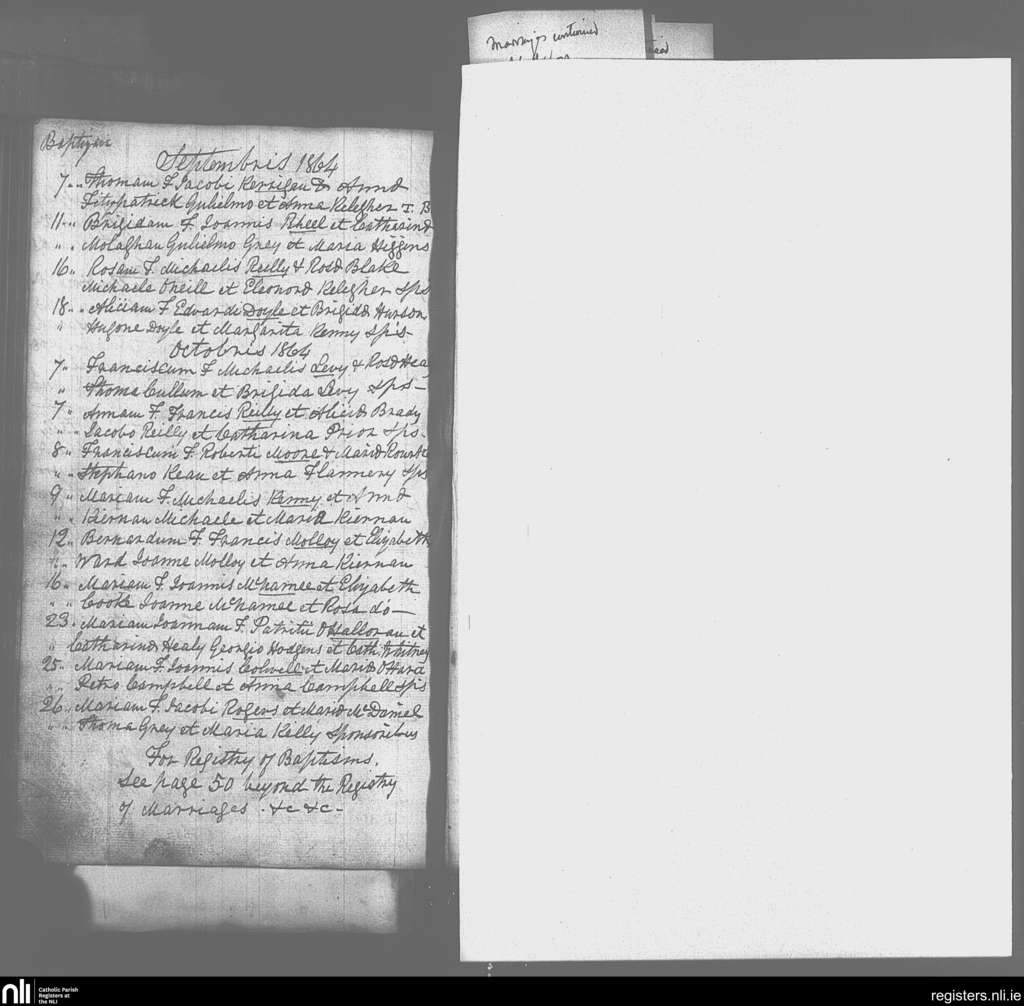 Marriages continued
Baptizavi
Septembris 1864
7 " " Thomam F Jacobi Kerrigan & Anna
Fitzpatrick Gulielmo et Anna Kelegher T. B
11 " " Brigidam F. Joannis Rheel et Catharina
" " . Molaghan Gulielmo Grey et Maria Higgins
16 " Rosam F. Michaelis Reilly & Rosa Blake
Michaele Oneill et Eleonora Kelegher Sps
18 " " Aliciam F Edvardi Doyle et Brigida Hurson
" Hugone Doyle et Margarita Kenny Sps-
Octobris 1864
7 " Franciscum F Michaelis Levy & Rosa Hea
" Thoma Cullum et Brigida Levy Sps-
7 " Annam F. Francis Reilly et Alicia Brady
" " Jacobo Reilly et Catharina Prior Sps-
8 " Franciscum F. Roberti Moore & Maria Rourke
" " Stephano Kean et Anna Flannery Sps
9 " Mariam F. Michaelis Kenny et Anna
" " Kiernan Michaele et Maria Kiernan
12 " Bernardum F. Francis Molloy et Elizabeth
" " Ward Joanne Molloy et Anna Kiernan
16 " Mariam F. Joannis McNamee et Elizabeth
" " Cooke Joanne McNamee et Rosa do-
23 " Mariam Joannam F. Patritii O'Halloran et
" Catharina Healy Georgio Hodgens et Cath. Whitney
25 " Mariam F. Joannis Colwell et Maria O'Hara
" " Petro Campbell et Anna Campbell Sps
26 " Mariam F. Jacobi Rogers et Maria McDaniel
" " Thoma Grey et Maria Kelly Sponsoribus
For Registry of Baptisms.
See page 50 beyond the Registry
of Marriages . &c &c-
nli
Catholic Parish
Registers at
the NLI
registers.nli.ie